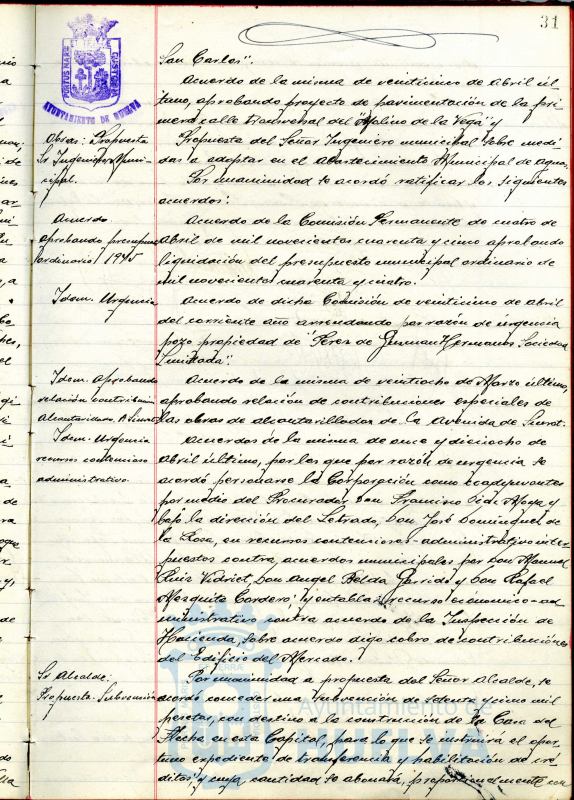 31
PORTUS MARIS ET TERRAE CUSTODIA
AYUNTAMIENTO DE HUELVA
San Carlos".
Acuerdo de la misma de veinticinco de abril úl-
timo, aprobando proyecto de pavimentación de la pri-
mera calle transversal del "Molino de la Vega" y
Obras: Propuesta
Sr Ingeniero Muni-
cipal.
Propuesta del Señor Ingeniero municipal sobre medi-
das a adoptar en el abastecimiento Municipal de aguas.
Por unanimidad se acordó ratificar los siguientes
acuerdos:
Acuerdo
aprobando presupues
ordinario 1945
Acuerdo de la Comisión Permanente de cuatro de
abril de mil novecientos cuarenta y cinco aprobando
liquidación del presupuesto municipal ordinario de
mil novecientos cuarenta y cuatro.
Idem. Urgencia
Acuerdo de dicha Comisión de veinticinco de abril
del corriente año arrendando por razón de urgencia
pozo propiedad de "Perez de Guzman Hermanos Sociedad
Limitada".
Idem. Aprobando
relación contribución
Alcantarillado. A. Sunat
Acuerdo de la misma de veintiocho de Marzo último,
aprobando relación de contribuciones especiales de
las obras de alcantarilladas de la Avenida de Sunat.
Idem. Urgencia
recursos contencioso
administrativo.
Acuerdos de la misma de once y dieciocho de
Abril último, por los que por razón de urgencia se
acordó personarse la Corporación como coadyuvantes
por medio del Procurador, Don Francisco Moya y
bajo la dirección del Letrado, Don José Dominguez de
la Rosa, en recursos contencioso-administrativo inter
puestos contra acuerdos municipales por Don Manuel
Ruiz Don Angel Belda Garrido y Don Rafael
Mezquita Cordero, y entablar recurso económico-ad
ministrativo contra acuerdo de la Inspección de
Hacienda, sobre acuerdo digo cobro de contribuciones
del Edificio del Mercado.
Sr Alcalde.
Propuesta. Subvención
Por unanimidad a propuesta del Señor Alcalde, se
acordó conceder una subvención de setenta y cinco mil
pesetas, con destino a la construcción de la Casa del
Flecha en esta Capital, para lo que se instruirá el opor
tuno expediente de transferencia y habilitación de cré
ditos y cuya cantidad se abonará, proporcionalmente con
Ayuntamiento de
HUELVA